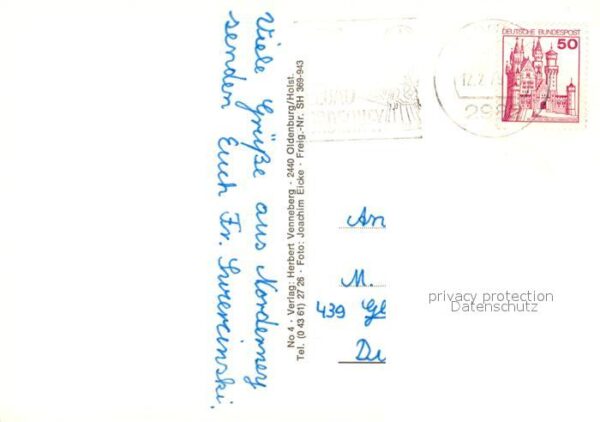 Viele Grüße aus Norderney
senden Euch Fr. Swiercinski.
No 4 · Verlag: Herbert Venneberg · 2440 Oldenburg/Holst.
Tel. (0 43 61) 27 26 · Foto: Joachim Eicke · Freig.-Nr. SH 369-943
DEUTSCHE BUNDESPOST
50
An
M.
439 Gl
De
privacy protection
Datenschutz